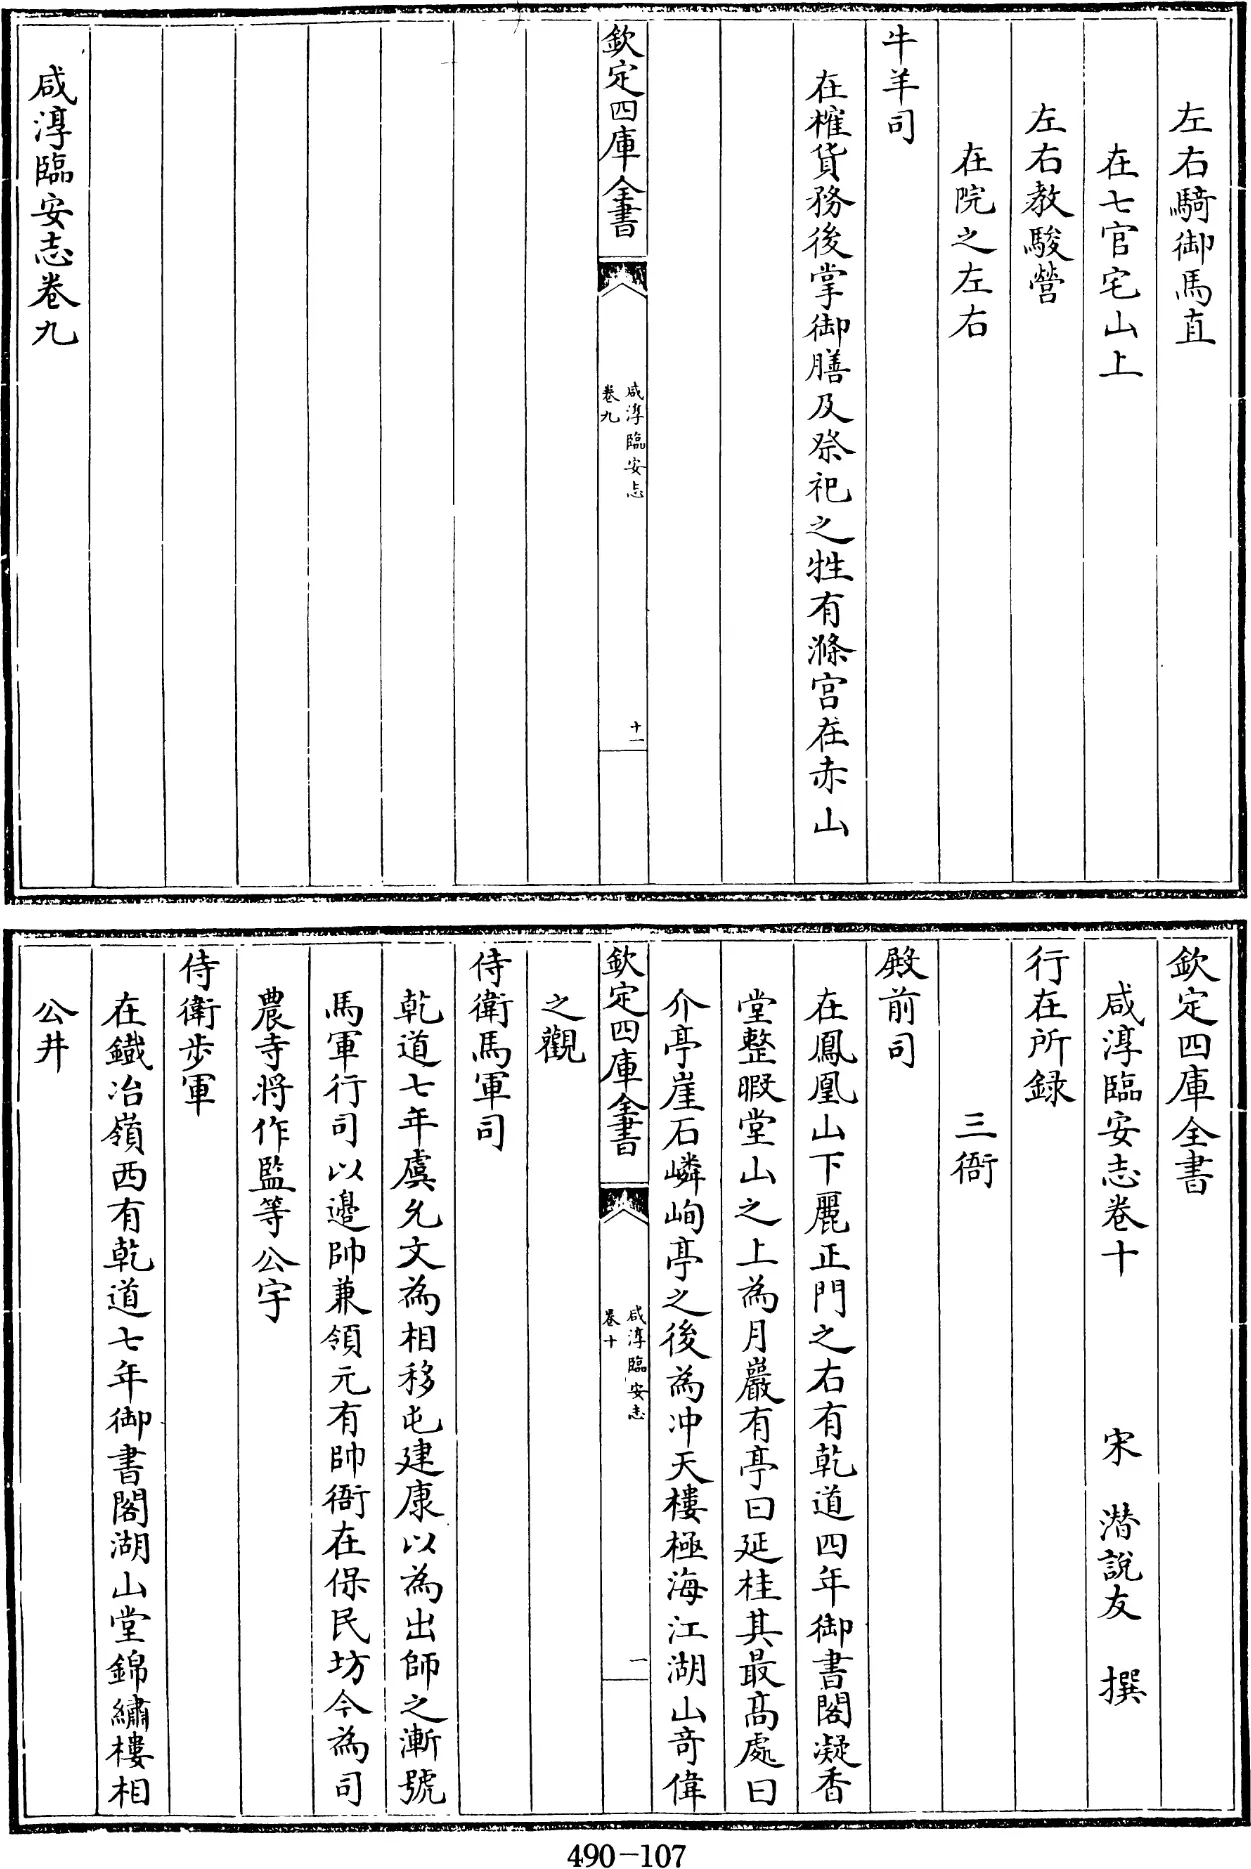 左右騎御馬直
在七官宅山上
左右教駿營
在院之左右
牛羊司
在榷貨務後掌御膳及祭祀之牲有滌宫在赤山
欽定四庫全書
咸淳臨安志
卷九
十一
咸淳臨安志卷九
欽定四庫全書
咸淳臨安志卷十
宋 潜說友 撰
行在所録
三衙
殿前司
在鳳凰山下麗正門之右有乾道四年御書閣凝香
堂整暇堂山之上為月巖有亭曰延桂其最高處曰
介亭崖石嶙峋亭之後為冲天樓極海江湖山竒偉
欽定四庫全書
咸淳臨安志
卷十
一
之觀
侍衛馬軍司
乾道七年虞允文為相移屯建康以為出師之漸號
馬軍行司以邊帥兼領元有帥衙在保民坊今為司
農寺將作監等公宇
侍衛步軍
在鐵冶嶺西有乾道七年御書閣湖山堂錦繡樓相
公井
490-107